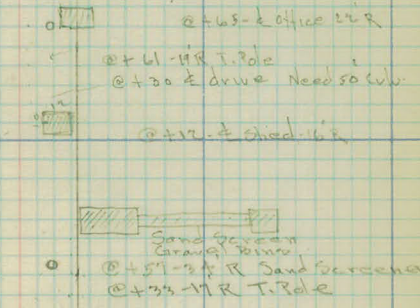 @ +65 - ℄ Office 22' R
@ +61 - 19' R T. Pole
@ +30 ℄ drive Need 50' Culv.
12
@ +12 - ℄ Shed - 16' R
Sand Screen
Gravel Bins
@ +57 - 34 R Sand Screener
@ +33 - 17 R T. Pole